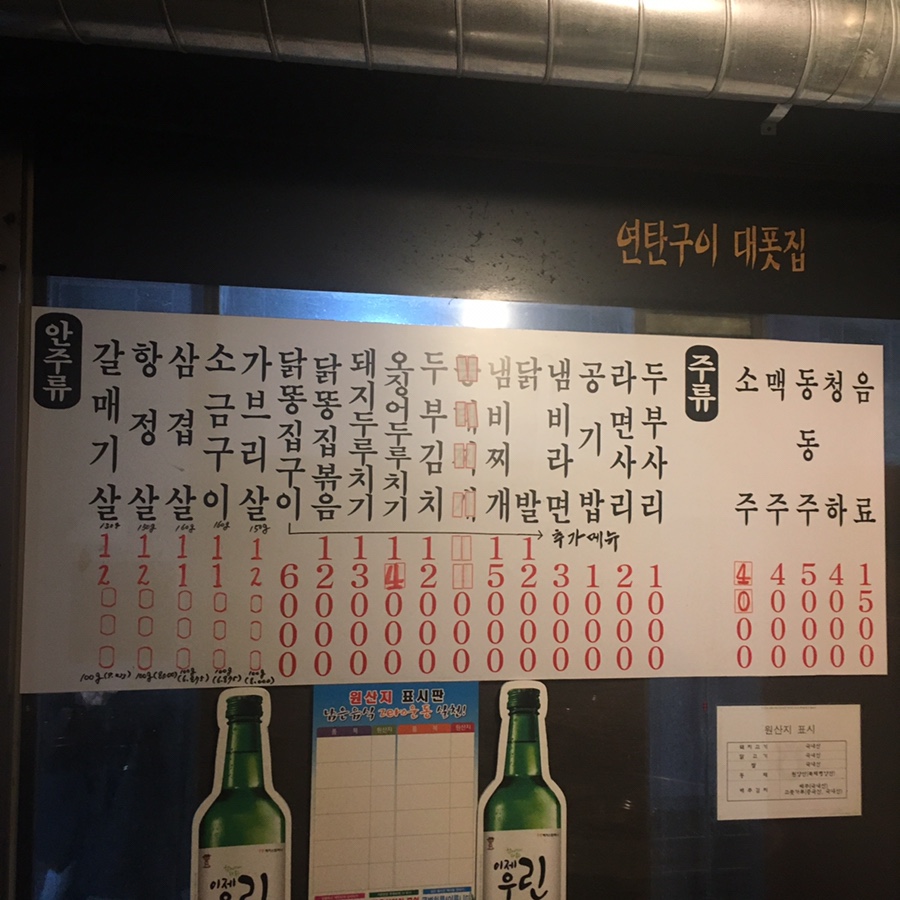 연탄구이 대폿집
안주류
갈매기살 12000
항정살 12000
삼겹살 11000
소금구이 11000
가브리살 12000
닭똥집구이 6000
닭똥집볶음 12000
돼지두루치기 13000
오징어두루치기 14000
두부김치 12000
냄비찌개 15000
닭발 12000
냄비라면 3000
공기밥 1000
라면사리 2000
두부사리 1000
추가메뉴
주류
소주 4000
맥주 4000
동동주 5000
청하 4000
음료 1500
원산지 표시판
남은음식 zero운동 실천!
이제
우린
이제
우린
원산지 표시
돼지고기 국내산
닭고기 국내산
쌀 국내산